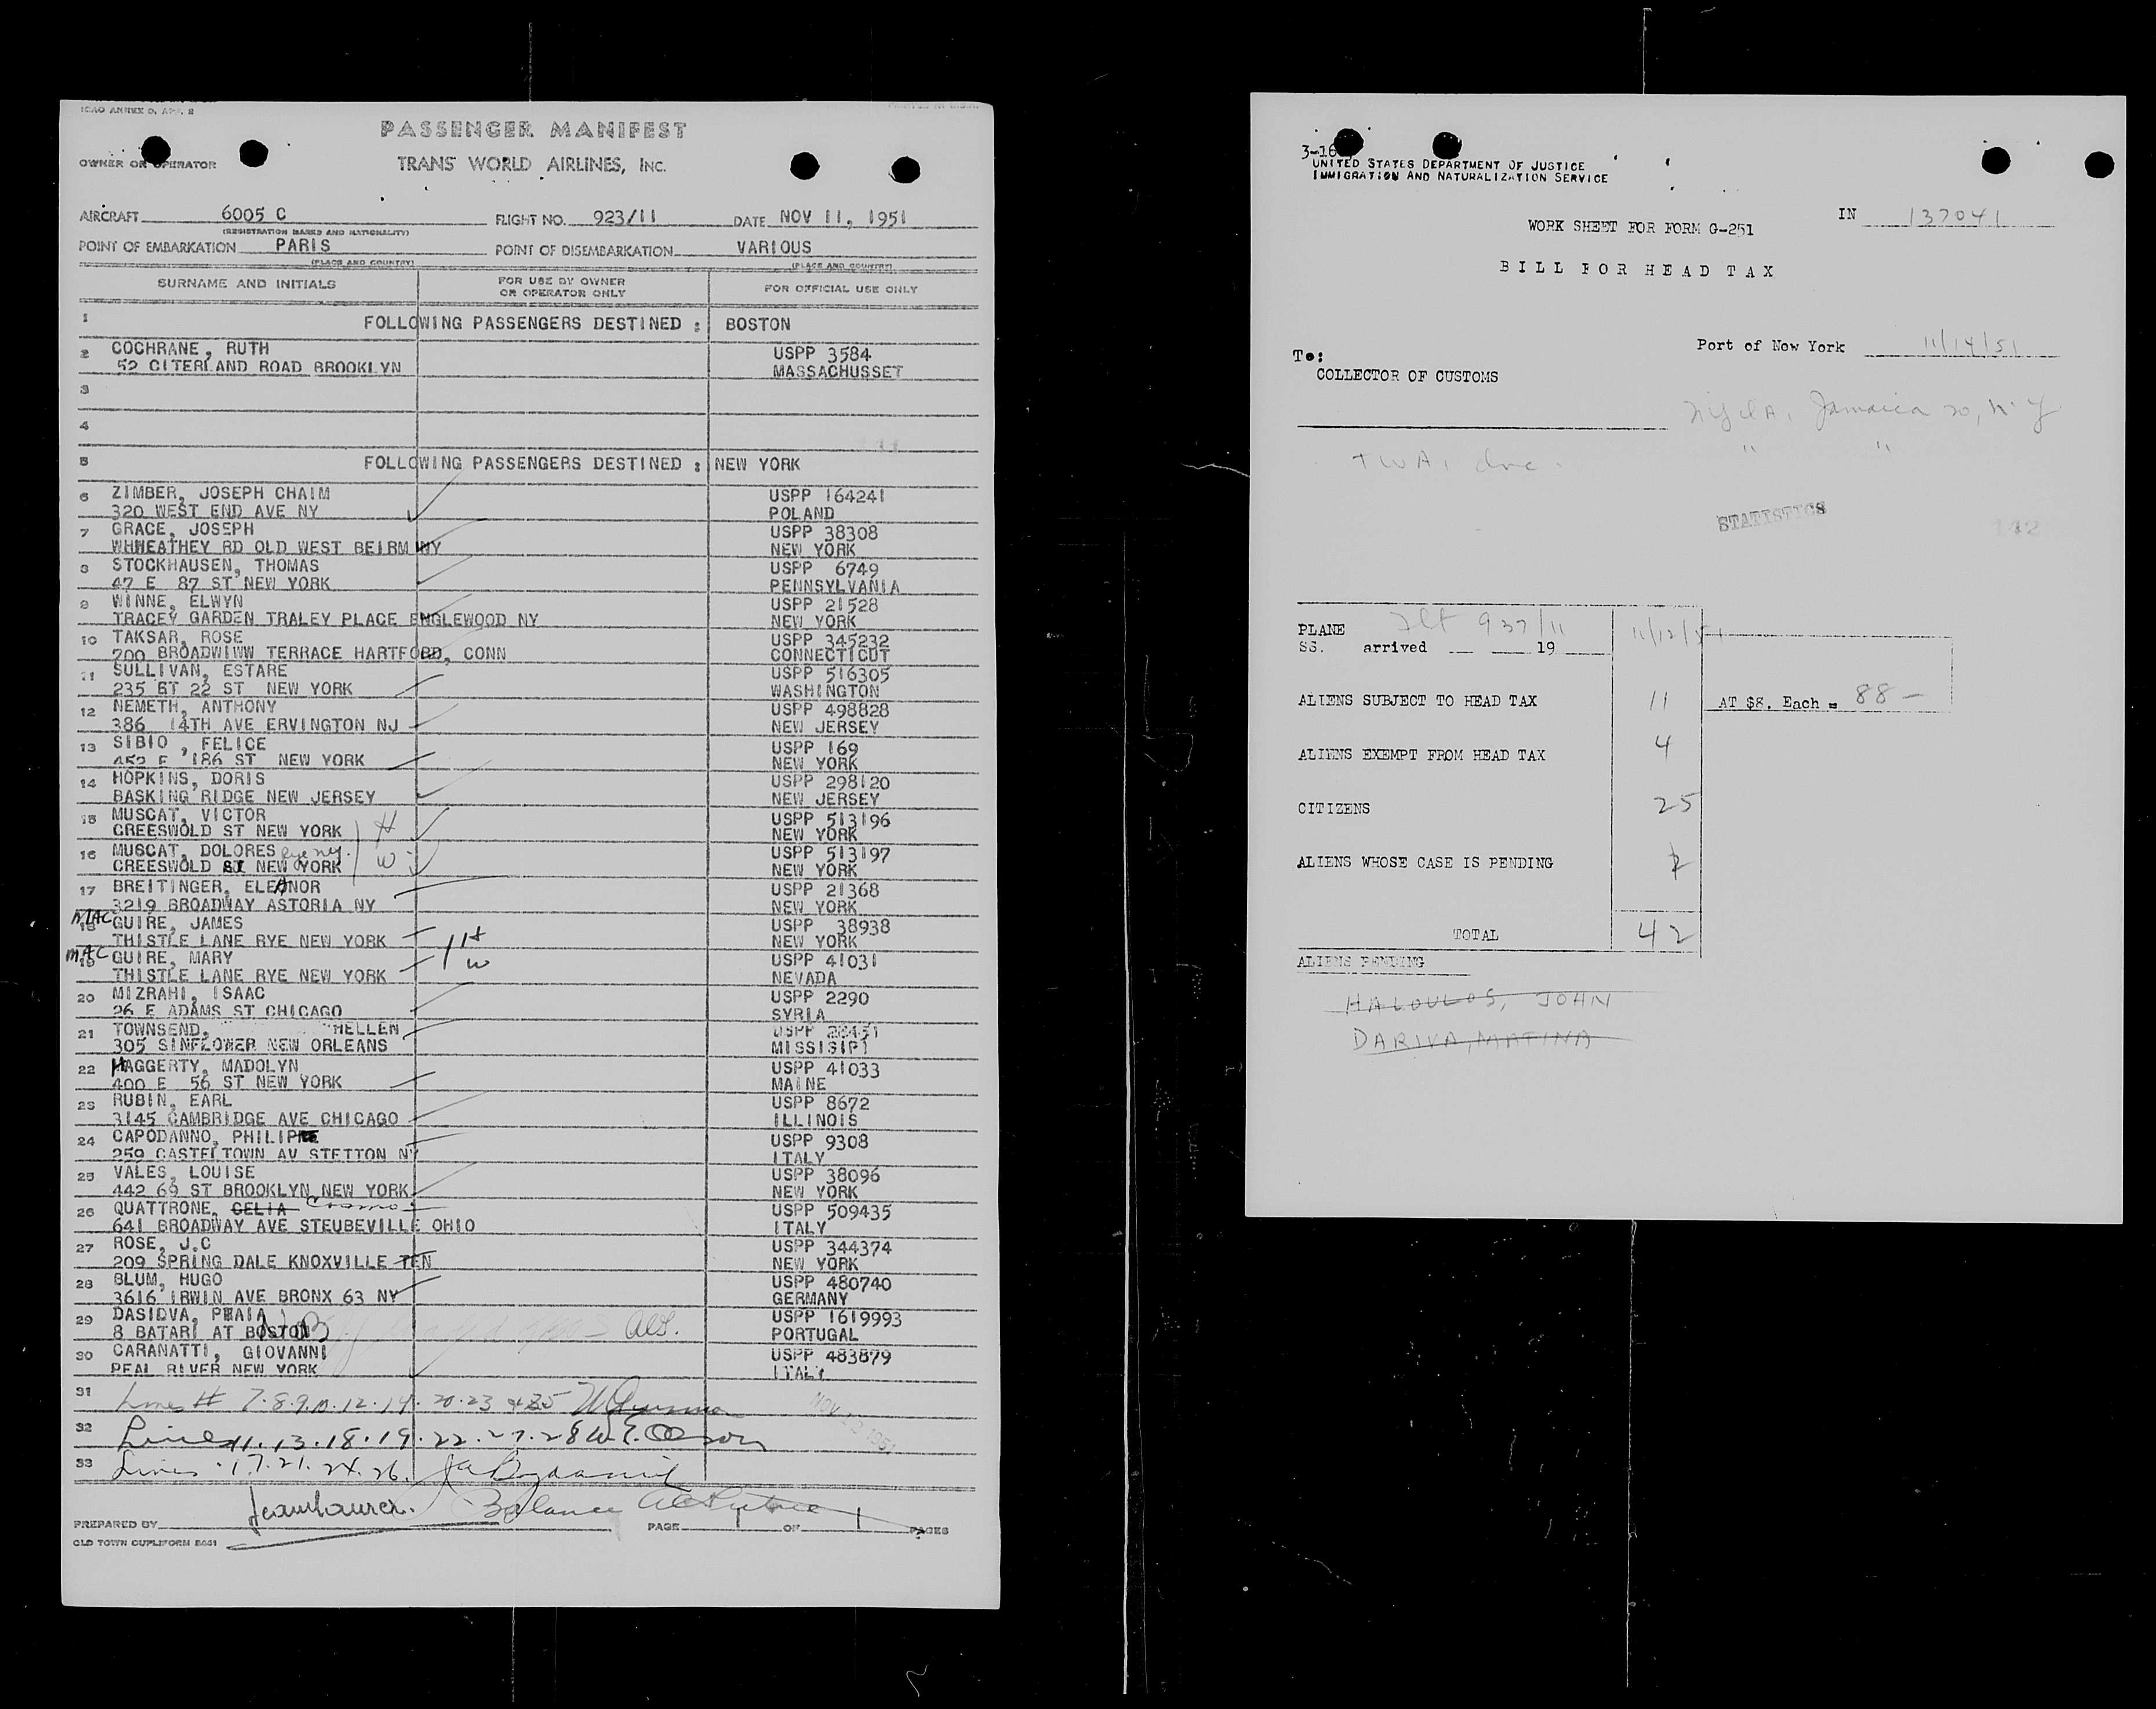 ICAO ANNEX 9, APP. 2
PASSENGER MANIFEST
OWNER OR OPERATOR
TRANS WORLD AIRLINES, Inc.
AIRCRAFT 6005 C FLIGHT NO. 923/11 DATE NOV 11, 1951
(REGISTRATION MARKS AND NATIONALITY)
POINT OF EMBARKATION PARIS POINT OF DISEMBARKATION VARIOUS
(PLACE AND COUNTRY) (PLACE AND COUNTRY)
SURNAME AND INITIALS FOR USE BY OWNER OR OPERATOR ONLY FOR OFFICIAL USE ONLY
1 FOLLOWING PASSENGERS DESTINED : BOSTON
2 COCHRANE, RUTH USPP 3584
52 CITERLAND ROAD BROOKLYN MASSACHUSSET
3
4
5 FOLLOWING PASSENGERS DESTINED : NEW YORK
6 ZIMBER, JOSEPH CHAIM USPP 164241
320 WEST END AVE NY POLAND
7 GRACE, JOSEPH USPP 38308
WHHEATHEY RD OLD WEST BEIRM NY NEW YORK
8 STOCKHAUSEN, THOMAS USPP 6749
47 E 87 ST NEW YORK PENNSYLVANIA
9 WINNE, ELWYN USPP 21528
TRACEY GARDEN TRALEY PLACE ENGLEWOOD NY NEW YORK
10 TAKSAR, ROSE USPP 345232
700 BROADWIWW TERRACE HARTFORD, CONN CONNECTICUT
11 SULLIVAN, ESTARE USPP 516305
235 ET 22 ST NEW YORK WASHINGTON
12 NEMETH, ANTHONY USPP 498828
386 14TH AVE ERVINGTON NJ NEW JERSEY
13 SIBIO , FELICE USPP 169
452 E 186 ST NEW YORK NEW YORK
14 HOPKINS, DORIS USPP 298120
BASKING RIDGE NEW JERSEY NEW JERSEY
15 MUSCAT, VICTOR H USPP 513196
CREESWOLD ST NEW YORK NEW YORK
16 MUSCAT, DOLORES Rye ny. W USPP 513197
CREESWOLD ST NEW YORK NEW YORK
17 BREITINGER, ELEANOR USPP 21368
3219 BROADWAY ASTORIA NY NEW YORK
18 MAC GUIRE, JAMES USPP 38938
THISTLE LANE RYE NEW YORK H NEW YORK
19 MAC GUIRE, MARY W USPP 41031
THISTLE LANE RYE NEW YORK NEVADA
20 MIZRAHI, ISAAC USPP 2290
26 E ADAMS ST CHICAGO SYRIA
21 TOWNSEND, HELLEN USPP
305 SINFLOWER NEW ORLEANS MISSISIPI
22 HAGGERTY, MADOLYN USPP 41033
400 E 56 ST NEW YORK MAINE
23 RUBIN, EARL USPP 8672
3145 CAMBRIDGE AVE CHICAGO ILLINOIS
24 CAPODANNO, PHILIP USPP 9308
259 CASTELTOWN AV STETTON NY ITALY
25 VALES, LOUISE USPP 38096
442 69 ST BROOKLYN NEW YORK NEW YORK
26 QUATTRONE, CELIA Cosmo USPP 509435
641 BROADWAY AVE STEUBEVILLE OHIO ITALY
27 ROSE, J.C USPP 344374
209 SPRING DALE KNOXVILLE TEN NEW YORK
28 BLUM, HUGO USPP 480740
3616 IRWIN AVE BRONX 63 NY GERMANY
29 DASIDVA, PRAIA USPP 1619993
8 BATARI AT BOSTON PORTUGAL
30 CARANATTI, GIOVANNI USPP 483879
PEAL RIVER NEW YORK ITALY
31 Lines # 7.8.9.10.12.14. 20.23 & 25
32 Lines 11.13.18.19.22.27.28
33 Lines 17.21.24.26.
Balance
PREPARED BY PAGE 1 OF 1 PAGES
OLD TOWN DUPLIFORM
3-16
UNITED STATES DEPARTMENT OF JUSTICE
IMMIGRATION AND NATURALIZATION SERVICE
IN 137041
WORK SHEET FOR FORM G-251
BILL FOR HEAD TAX
Port of New York 11/14/51
To:
COLLECTOR OF CUSTOMS
Jamaica 20, N.Y
TWA, Inc. " "
STATISTICS
142
PLANE Flt 937/11 11/12/51
SS. arrived 19
ALIENS SUBJECT TO HEAD TAX 11 AT $8. Each = 88 —
ALIENS EXEMPT FROM HEAD TAX 4
CITIZENS 25
ALIENS WHOSE CASE IS PENDING 2
TOTAL 42
ALIENS PENDING
HALOULOS, JOHN
DARIVA, MATINA